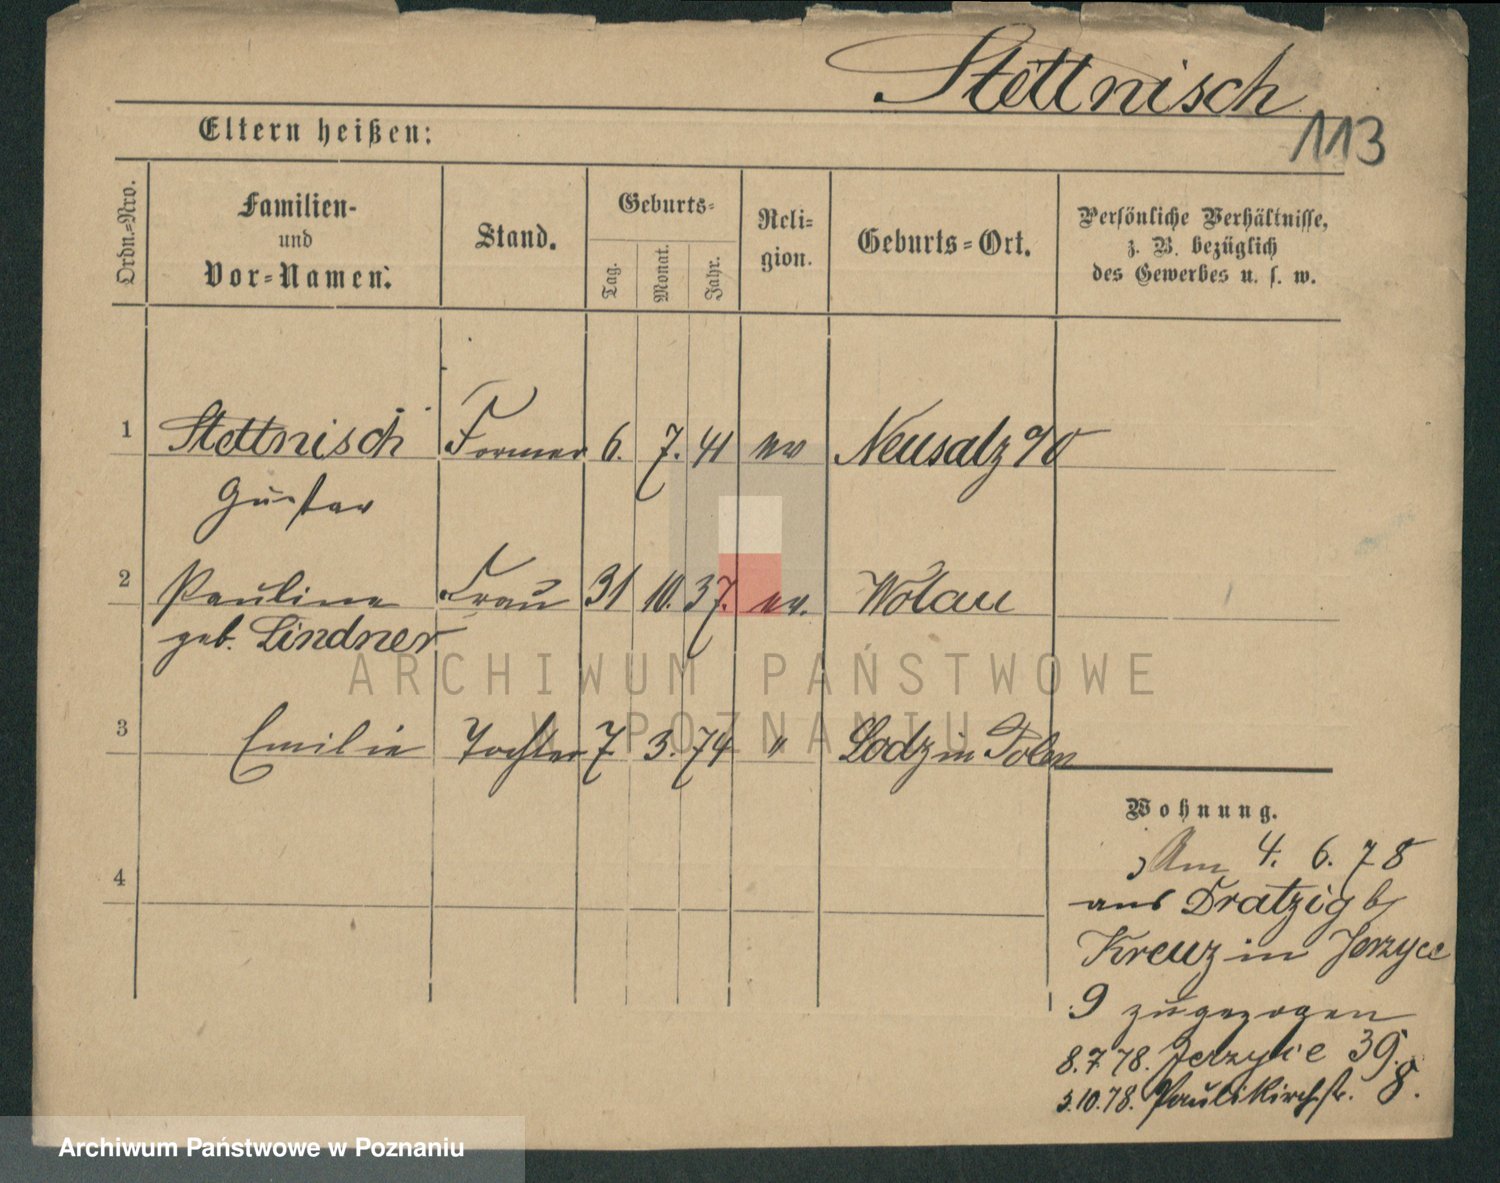 Stettnisch
113
Eltern heißen:
Ordn.-Nro.
Familien-
und
Vor-Namen.
Stand.
Geburts-
Tag.
Monat.
Jahr.
Reli-
gion.
Geburts-Ort.
Persönliche Verhältnisse,
z. B. bezüglich
des Gewerbes u. s. w.
1 Stettnisch Former 6. 7. 41 ev Neusalz a/O
Gustav
2 Pauline Frau 31 10. 37. ev. Wolau
geb. Lindner
3 Emilie Tochter 7 3. 74 " Lodz in Polen
4
Wohnung.
Am 4. 6. 78
aus Dratzig b/
Kreuz in Jerzyce
9 zugezogen
8.7.78. Jerzyce 39.
3.10.78. Paulikirchstr. 8.
ARCHIWUM PAŃSTWOWE
W POZNANIU
Archiwum Państwowe w Poznaniu